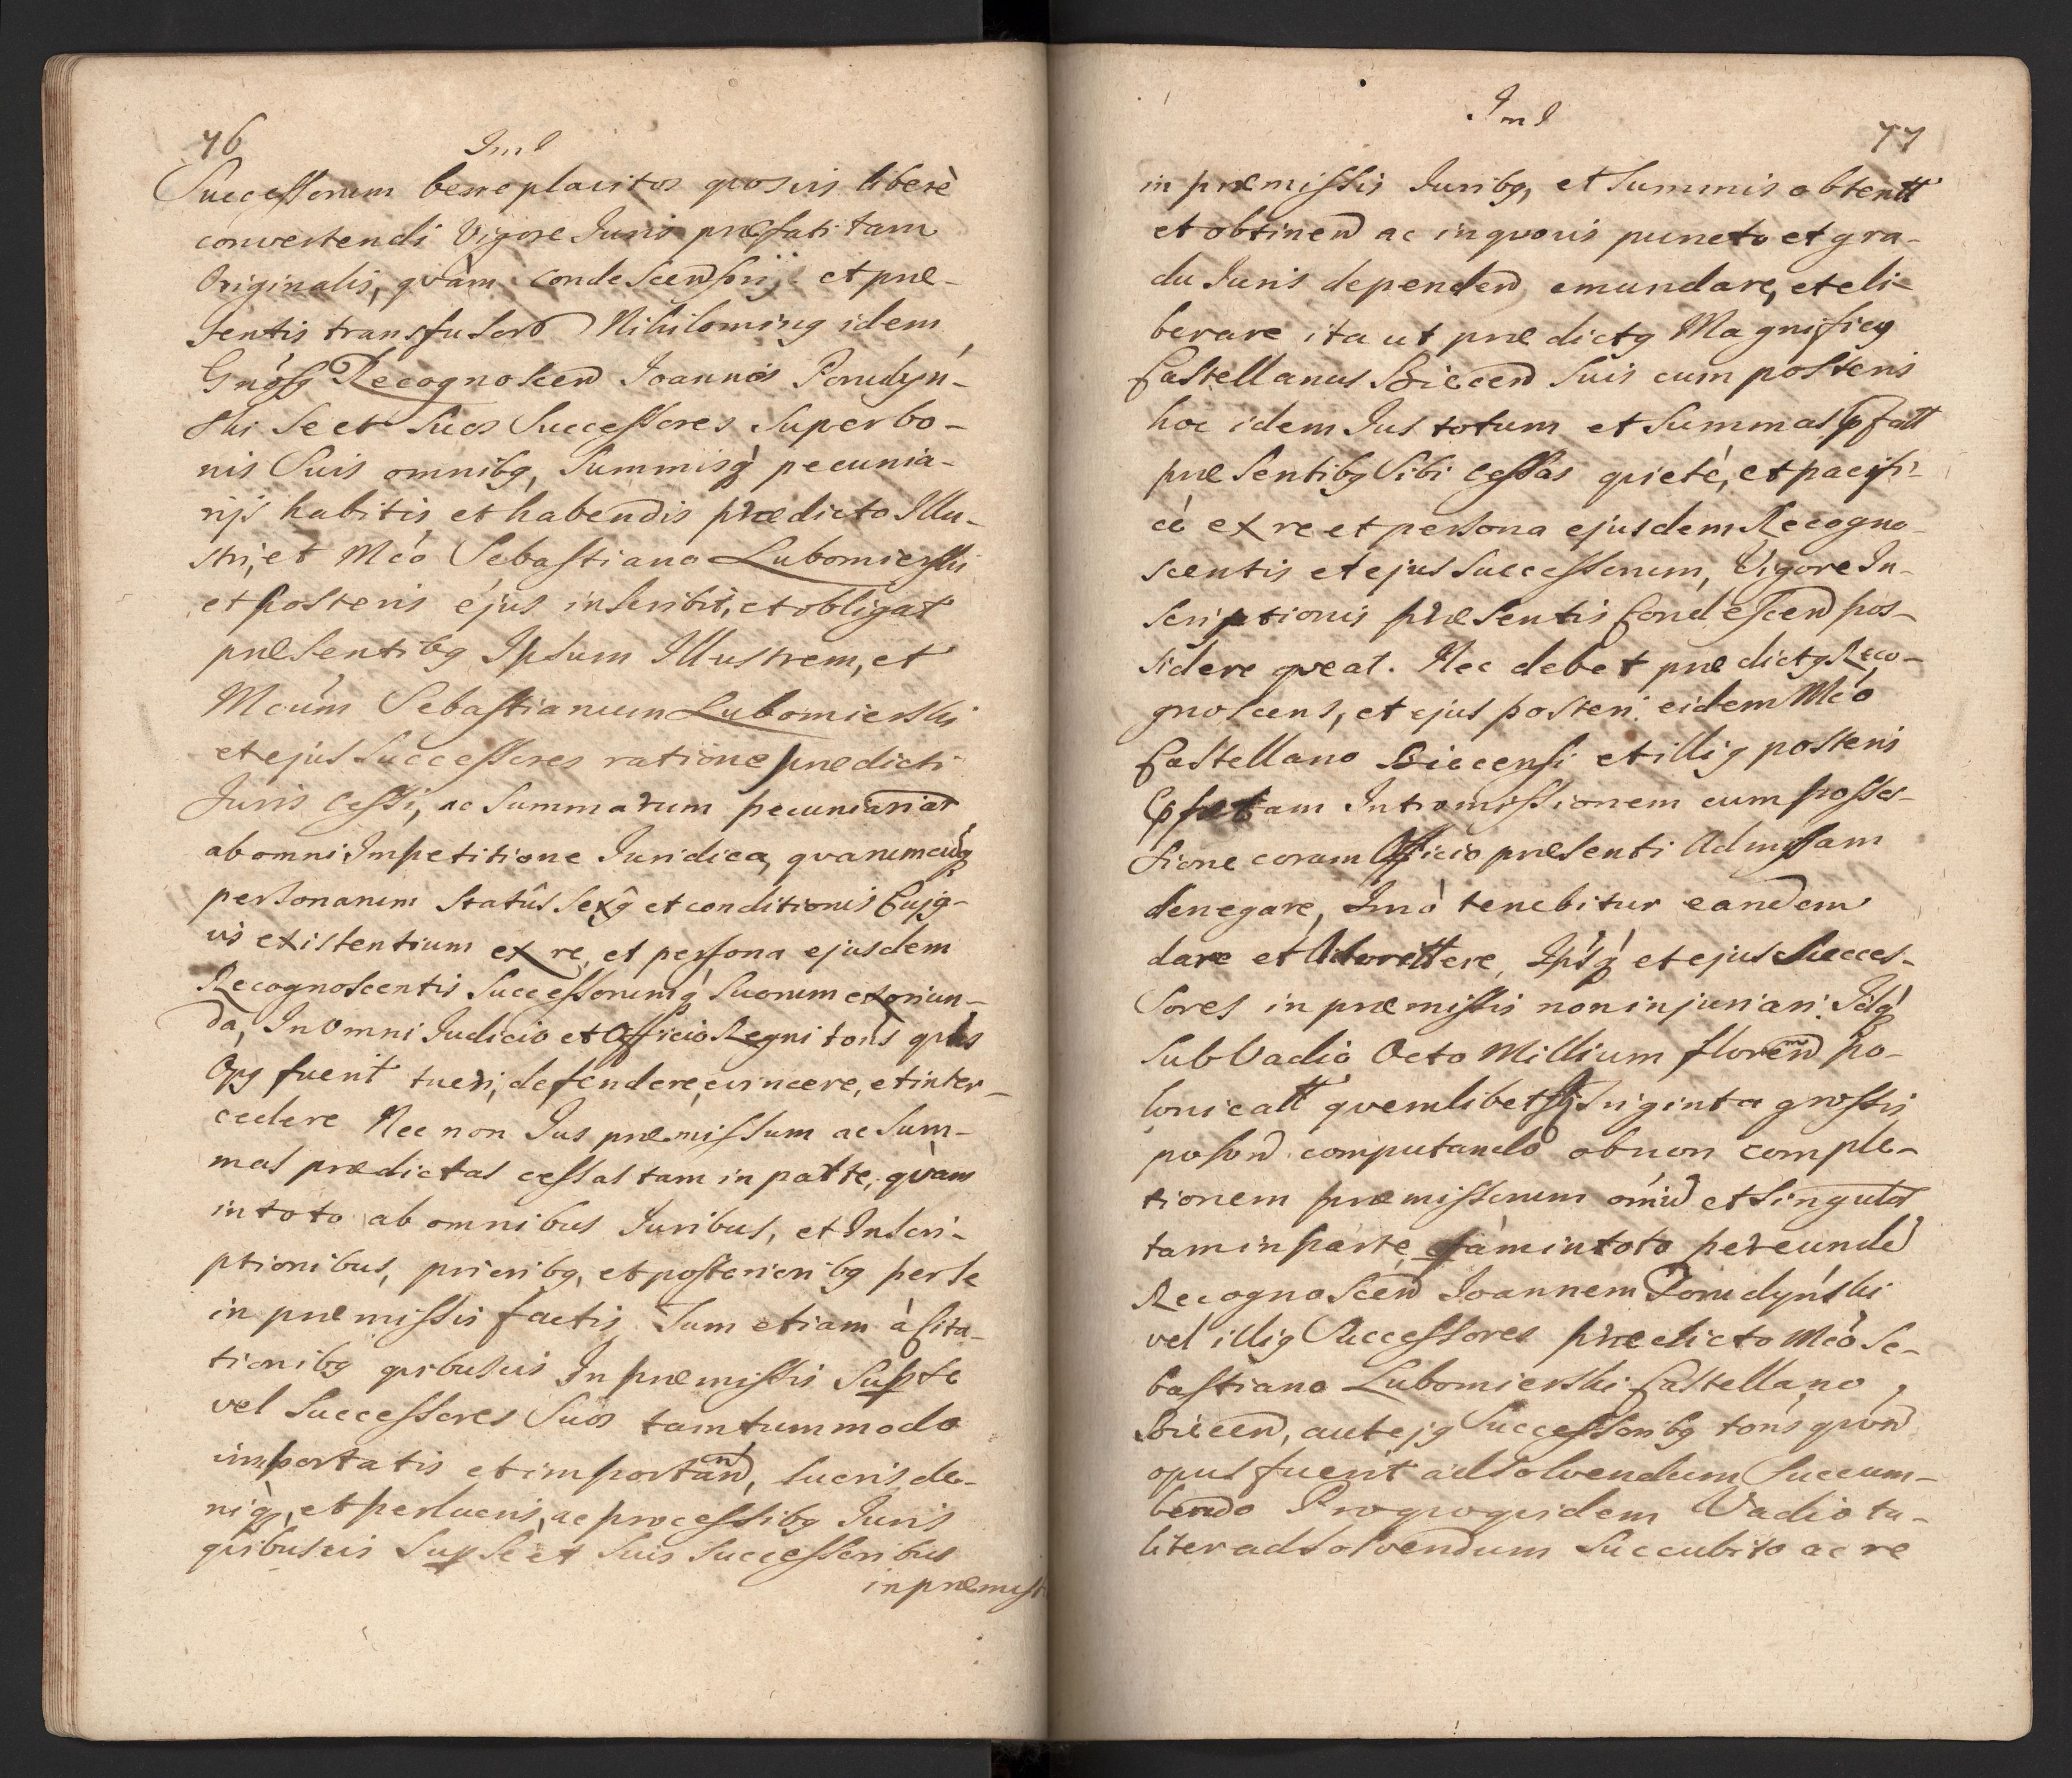 76
Successorum beneplacitos quosvis liberè
convertendi Vigore Juris præfati tam
Originalis, quàm Condescensorij et præ-
sentis transfusorŏ Nihilominꝰ idem
Gnósꝰ Recognoscen̄ Joannes
ski Se et Suos Successores Super bo-
nis Suis omnibꝰ, Summisq́ pecunia-
rijs habitis et habendis prædicto Illu-
stri, et Mcó Sebastiano Lubomierski
et posteris ejus inscribit, et obligat
præsentibꝰ Ipsum Illustrem, et
Mcúm Sebastianum Lubomierski
et ejus Successores ratione prædicti
Juris Cessi, ac Summarum pecuniariar̄
ab omni Impetitione Juridica, quarumcúqꝫ
personarum Statûs Sexꝰ et conditionis Cujꝰ-
vis existentium ex re, et persona ejusdem
Recognoscentis Successorumq́ Suorum exoriun-
da, In Omni Judicio et Officio Regni tótiés quties
Opꝰ fuerit tueri, defendere, evincere, et inter-
cedere Nec non Jus præmissum ac Sum-
mas prædictas cessas tam in parte, quàm
in toto ab omnibus Juribus, et Inscri-
ptionibus, prioribꝰ, et posterioribꝰ per se
in præmissis factis Tum etiam à Cita-
tionibꝰ quibusvis In præmissis Sup Se
vel Successores Suos tamtummodo
importatis et importan̄, lucris de-
niq́, et perlucris, ac processibꝰ Juris
quibusvis Sup Se et Suis Successoribus
in præmiss
77
in præmissis Juribꝰ, et Summis obtentt
et obtinen̄ ac in quovis puncto et gra-
du Juris dependen̄ emundare, et eli-
berare ita ut prædictꝰ Magnificꝰ
Castellanus Biecen̄ Suis cum posteris
hoc idem Jus totum et Summas pfatt
præsentibꝰ Sibi Cessas quieté, et pacifi-
cé ex re et persona ejusdem Recogno
scentis et ejus Successorum, Vigore In-
scriptionis præsentis Condescen̄ pos-
sidere qveat. Nec debet prædictꝰ Reco-
gnoscens, et ejus posteri eidem Mcó
Castellano Biecensi et illiꝰ posteris
pfatam Intromissionem cum posses-
sione coram Officio præsenti Admissam
denegare, Imó tenebitur eandem
dare et Admittere, Ipsq́ et ejus Succes-
sores in præmissis non injuriari. Idq́
Sub Vadio Octo Millium floren̄ po-
lonicatt quemlibet p Triginta grossis
poson̄ computando ob non comple-
tionem præmissorum omniū et Singulor̄
tam in parte quàm in toto per eunde
Recognoscen̄ Joannem
vel illiꝰ Successores prædicto Mcó Se-
bastiano Lubomierski Castellano
Biecen̄, aut ejꝰ Successoribꝰ tótiés quótiés
opus fuerit adsolvendum Succum-
bendo Pro quo quidem Vadio ta-
liter adsolvendum Succubito ac re